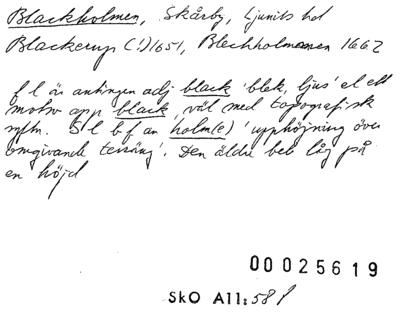 Blackholmen, Skårby, Ljunits hd
Blackerup (!) 1651, Bleckholmenen 1662
f l är antingen adj black 'blek, ljus' el ett
motsv app black, väl med topografisk
syftn. S l b f an holm(e) 'upphöjning över
omgivande terräng'. Den äldre beb låg på
en höjd
00025619
SkO All: 58 f